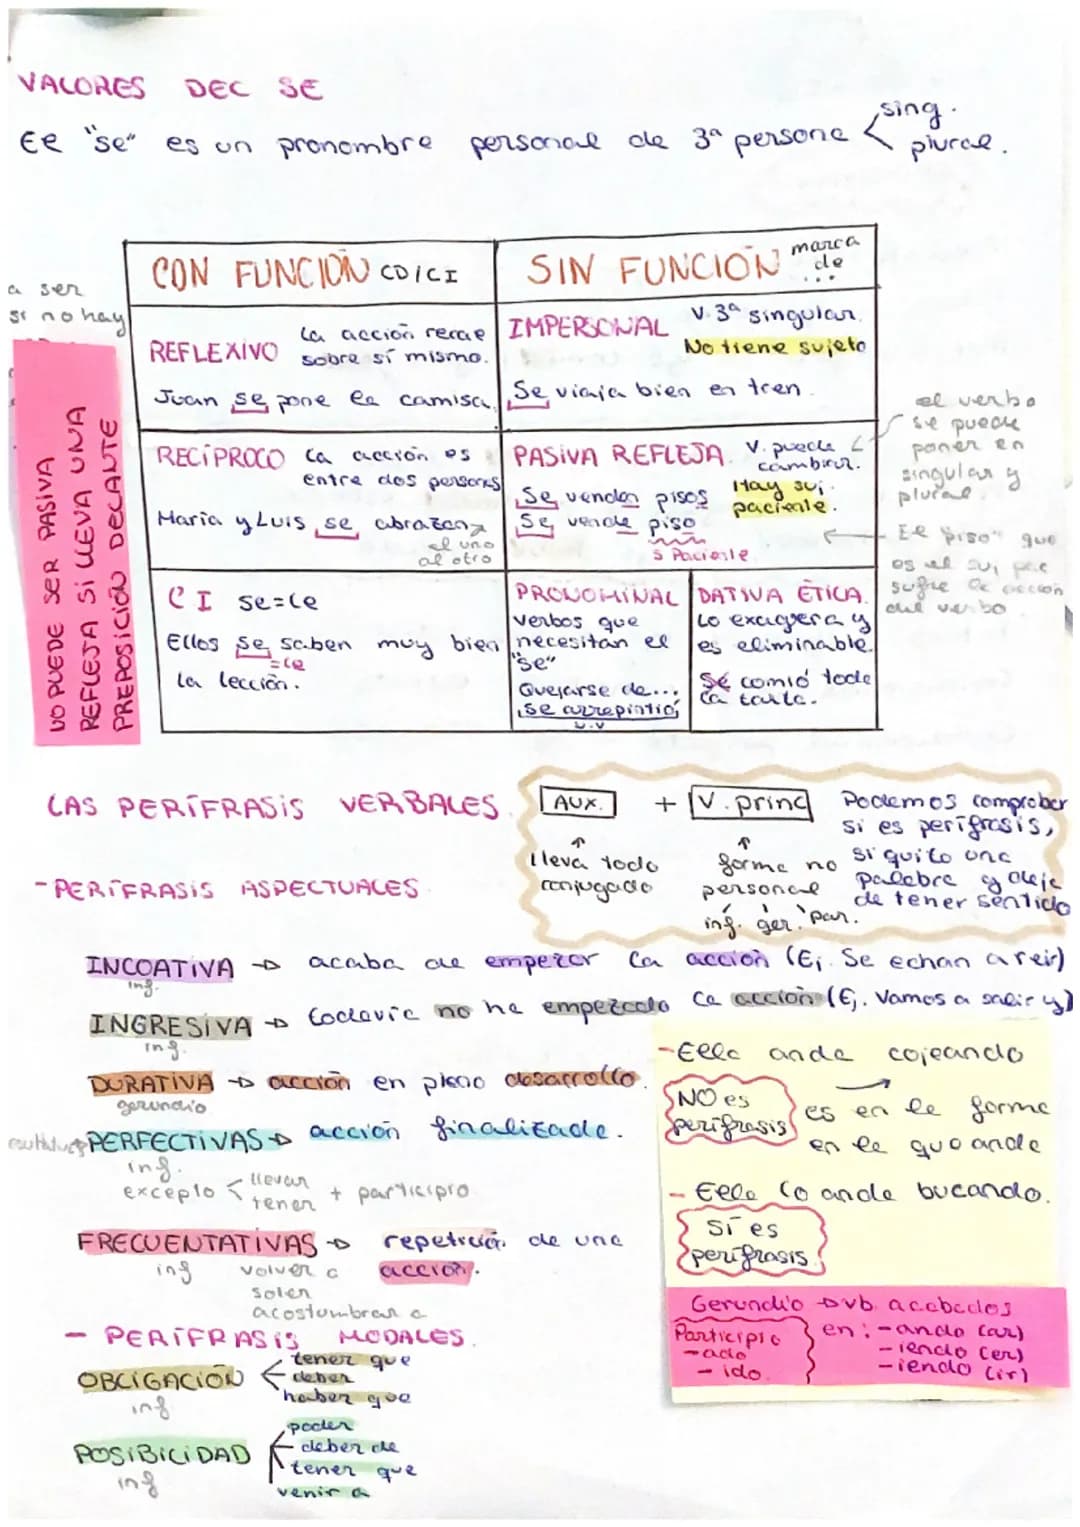 VALORES DEL SE
El "se" es un pronombre personal de 3ª persona < sing.
plural.
CON FUNCIÓN CD/CI
SIN FUNCIÓN marca de ...
a ser
si no hay
NO PUEDE SER PASIVA
REFLEJA SI LLEVA UNA
PREPOSICIÓN DELANTE
REFLEXIVO La acción recae
sobre sí mismo.
Juan se pone la camisa.
IMPERSONAL V. 3ª singular.
No tiene sujeto
Se viaja bien en tren.
RECÍPROCO La acción es
entre dos personas
María y Luis se abrazan
el uno
al otro
PASIVA REFLEJA V. puede
cambiar.
Hay suj.
paciente.
Se venden pisos
Se vende piso
S Paciente
el verbo
se puede
poner en
singular y
plural
← El "piso" que
es el suj pac
sufre la acción
del verbo
CI se=le
Ellos se saben muy bien
=le
la lección.
PRONOMINAL
verbos que
necesitan el
"se"
Quejarse de...
Se arrepintió
v.v
DATIVA ÉTICA
Lo exagera y
es eliminable.
Se comió toda
la tarta.
LAS PERÍFRASIS VERBALES
AUX. + V. princ
lleva todo
conjugado
forma no
personal
inf. ger. par.
Podemos comprobar
si es perífrasis,
si quito una
palabra y deja
de tener sentido
- PERÍFRASIS ASPECTUALES
INCOATIVA → acaba de empezar la acción (Ej. Se echan a reír)
inf.
INGRESIVA → todavía no ha empezado la acción (Ej. Vamos a salir y)
inf.
DURATIVA → acción en pleno desarrollo.
gerundio
PERFECTIVAS → acción finalizada.
inf.
excepto < llevar
tener + participio
FRECUENTATIVAS → repetición de una
acción.
inf volver a
soler
acostumbrar a
- Ella anda cojeando
NO es
perífrasis
es en la forma
en la que anda
- Ella lo anda bucando.
Sí es
perífrasis
Gerundio → vb. acabados
en: - ando (ar)
- iendo (er)
- iendo (ir)
Participio
- ado
- ido
- PERÍFRASIS MODALES
OBLIGACIÓN < tener que
deber
haber que
inf
POSIBILIDAD
inf
poder
deber de
tener que
venir a